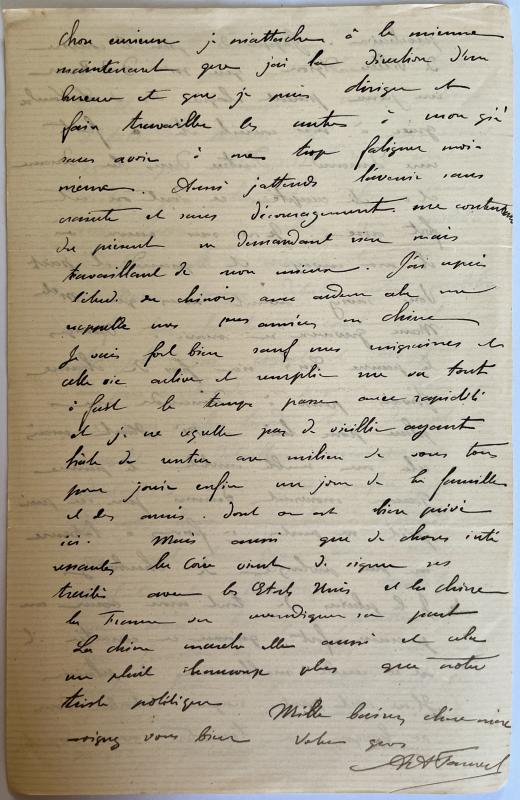 Chose curieuse je m'attache à la mienne
maintenant que j'ai la direction d'un
bureau et que je puis diriger et
faire travailler les autres à mon gré
sans avoir à me trop fatiguer moi-
même. Aussi j'attends l'avenir sans
crainte et sans découragement me contentant
du présent ne demandant rien mais
travaillant de mon mieux. J'ai repris
l'étude du chinois avec ardeur cela me
rappelle mes années en Chine
Je vais fort bien sauf mes migraines et
cette vie active et remplie me va tout
à fait le temps passe avec rapidité
et je ne regrette pas de vieillir ayant
hâte de rentrer au milieu de vous tous
pour jouir enfin un jour de la famille
et des amis dont on est bien privé
ici. Mais aussi que de choses inté
ressantes la Corée vient de signer ses
traités avec les Etats Unis et la Chine
la France va revendiquer sa part
La Chine marche elle aussi et cela
me plait beaucoup plus que notre
triste politique
Mille baisers chère mère
soignez vous bien votre gros
A A Fauvel